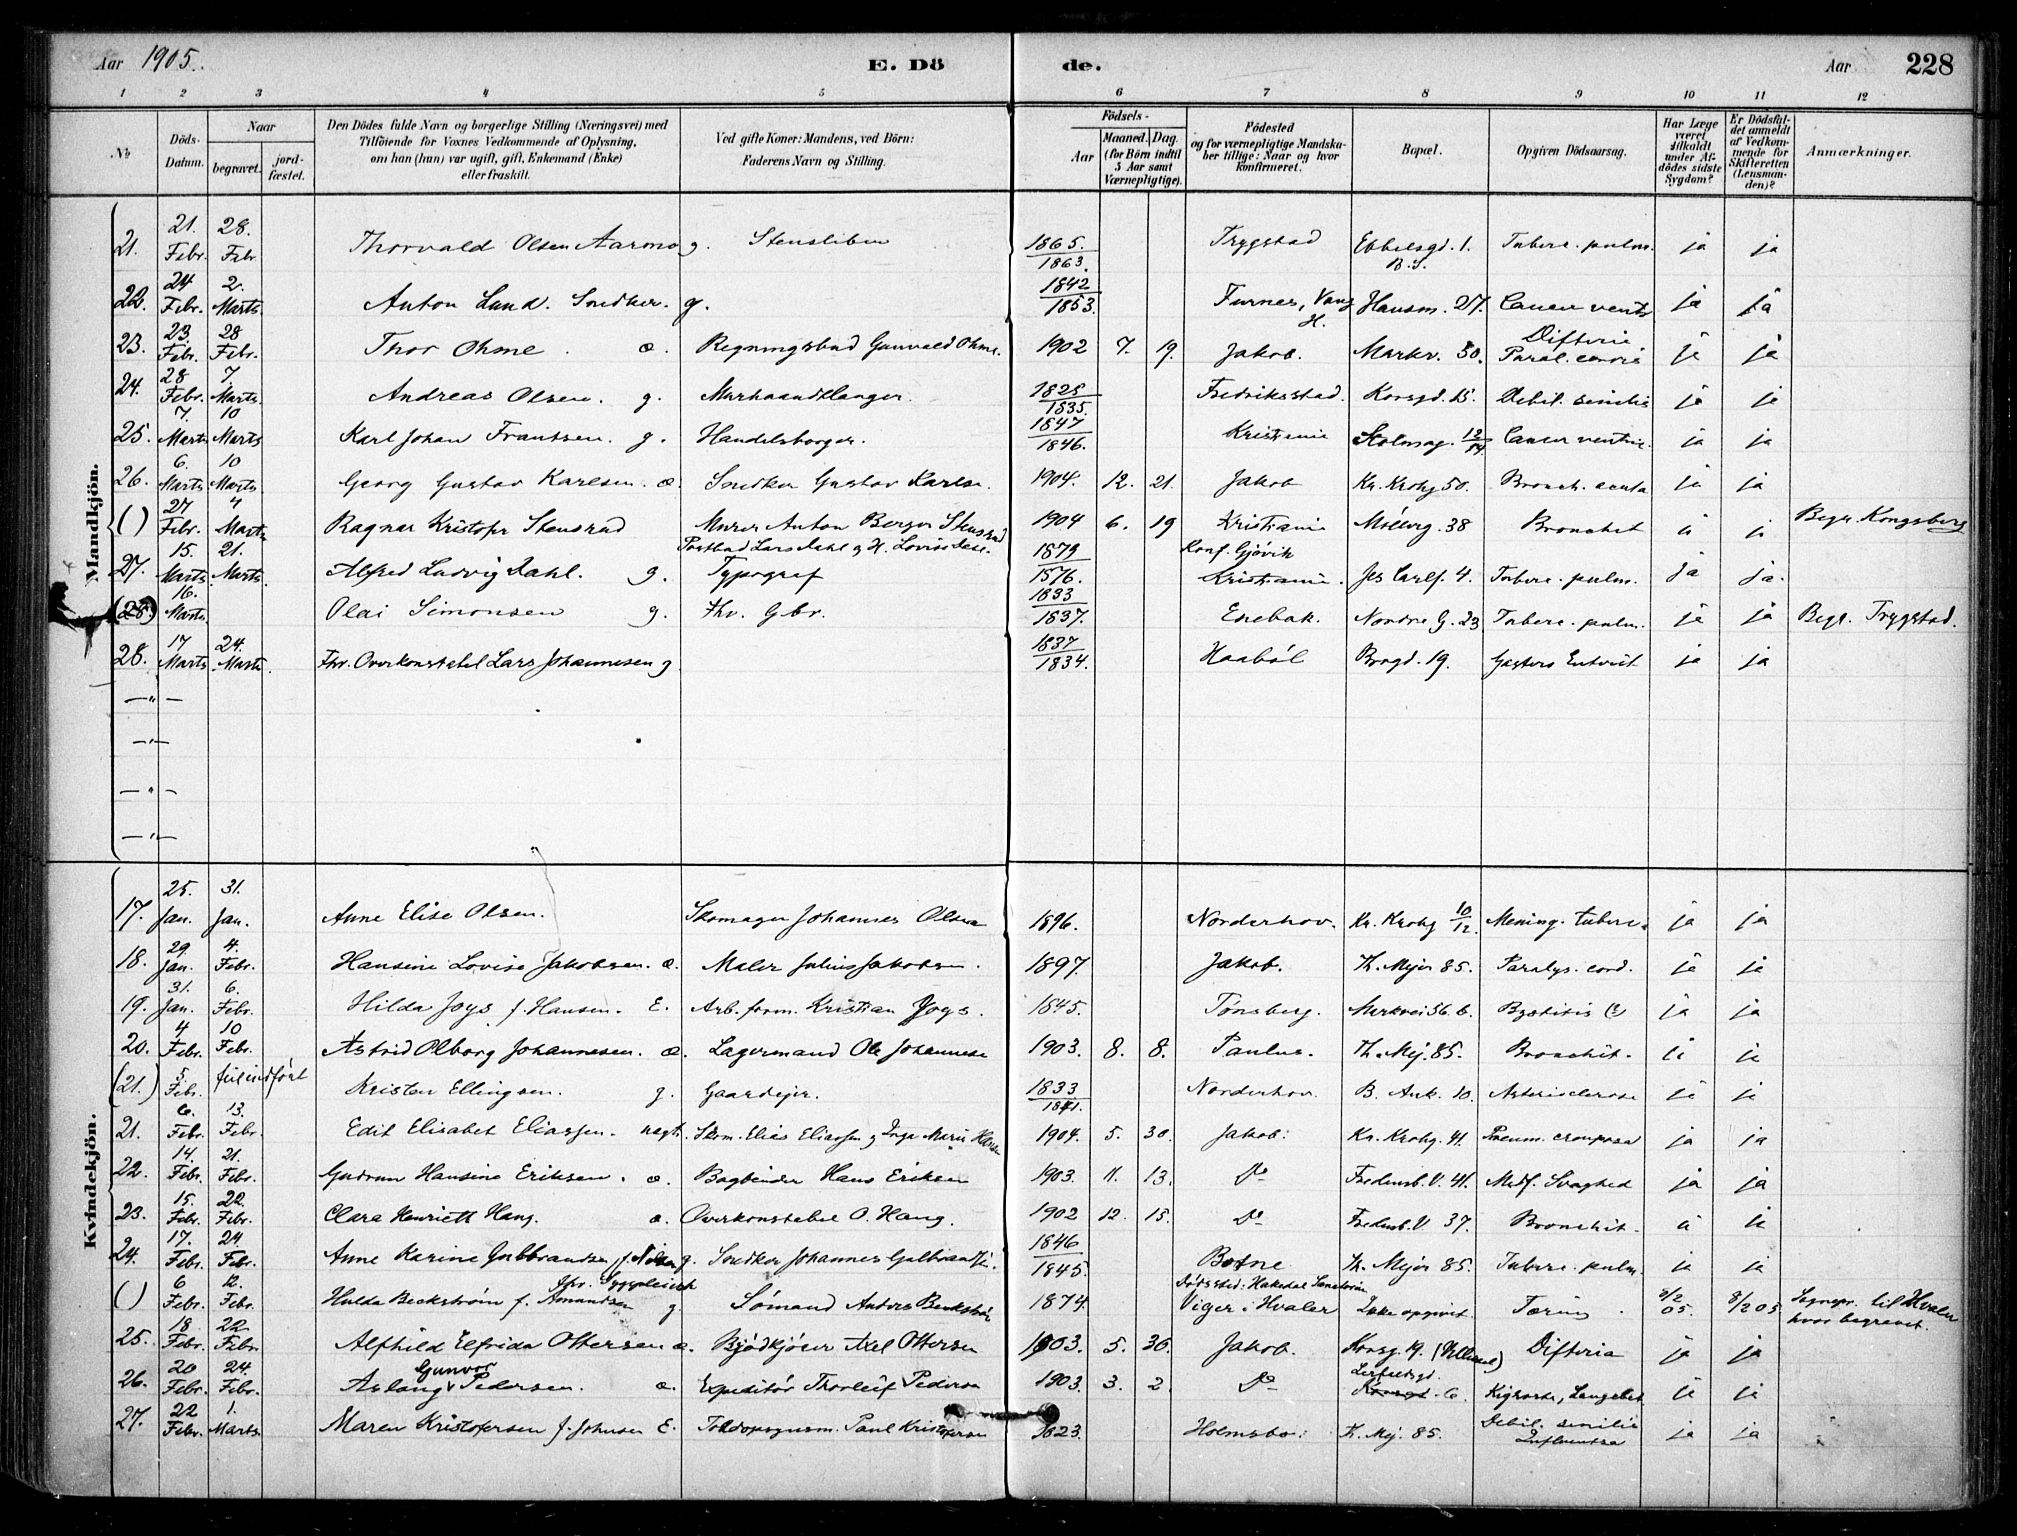 Aar 1905. E. Dö de. Aar 228
1 2 3 4 5 6 7 8 9 10 11 12
No
Döds-Datum.
Naar
begravet.
jord-fæstet.
Den Dödes fulde Navn og borgerlige Stilling (Næringsvei) med
Tilföiende for Voxnes Vedkommende af Oplysning,
om han (hun) var ugift, gift, Enkemand (Enke)
eller fraskilt.
Ved gifte Koner: Mandens, ved Börn:
Faderens Navn og Stilling.
Födsels-
Aar
Maaned. Dag.
(for Börn indtil
5 Aar samt
Værnepligtige).
Födested
og for værnepligtige Mandska-
ber tillige: Naar og hvor
konfirmeret.
Bopæl.
Opgiven Dödsaarsag.
Har Læge
været
tilkaldt
under Af-
dödes sidste
Sygdom?
Er Dödsfal-
det anmeldt
af Vedkom-
mende for
Skifteretten
(Lensman-
den)?
Anmærkninger.
Mandkjön.
21. 21. Febr. 28. Febr Thorvald Olsen Aarmo g. 1865. 1863. Trygstad Ebbelsgd. 1. B.S. Tuberc. pulm. ja ja
22. 24 Febr. 2. Marts. Anton Lund. Snedker. g. 1842 1853. Furnes, Vang H. Hausm. 27. Cancer ventr. ja ja
23. 23. Febr. 28 Febr. Thor Ohme. æ. Regningsbud Gunvald Ohme. 1902 7. 19. Jakob. Markv. 50. Difterie Paral. cordis ja ja
24. 28 Febr. 7. Marts. Andreas Olsen. g. Murhaandlanger. 1825 1835. Fredriksstad. Korsgd. 15. Debil. senilis ja ja
25. 7. Marts 10 Marts Karl Johan Frantsen. g. Handelsborger. 1847 1846. Kristiania 12/14 Cancer ventric. ja ja
26. 6. Marts 10 Marts Georg Gustav Karlsen. æ. Snedker Gustav Karlse. 1904. 12. 21. Jakob Kr. Krohg 50. Bronch. acuta ja ja
( ) 27 Febr. 4 Marts Ragnar Kristofer Stensrud Murer Anton Berger Stensrud 1904 6. 19 Kristiania Møllerg. 38 Bronchit ja ja Begr. Kongsberg
27. 15. Marts 21. Marts. Alfred Ludvig Dahl. g. Postbud Lars Dahl og H. Lovise Typograf 1879 1876. Konf. Gjövik Kristiania. Jes Carlf. 4. Tuberc. pulm. ja ja.
(28.) 16. Marts. Olai Simonsen g. fhv. Gbr. 1833 1837. Enebak. Nordre G. 23 Tuberc. pulm. ja ja Begr. Trygstad.
28. 17 Marts 24. Marts. Fhv. Overkonstabel Lars Johannesen g. 1837 1834. Haaböl Brogd. 19. ja ja
— " —
— " —
— " —
— " —
Kvindekjön.
17. 25. Jan. 31. Jan. Anne Elise Olsen. Skomager Johannes Olsen 1896. Norderhov. Kr. Krohg 10/12 Mening. tuberc. ja ja
18. 29 Jan. 4. Febr. Hansine Lovise Jakobsen. æ. Maler Julius Jakobsen. 1897. Jakob. Th. Mejer 85. Paralys. cord. ja ja
19. 31. Jan. 6. Febr. Hilda Joys f. Hansen. E. Arb. form. Kristian Joys. 1845. Tønsberg. Markvei 56. b. ja ja
20. 4 Febr. 10 Febr. Astrid Olborg Johannesen. æ. Lagermand Ole Johannese 1903. 8. 8. Paulus. Th. Mej. 85. Bronchit. ja ja
(21.) 5. Febr. feilindført Kristen Ellingsen. g. Gaardejer. 1833 1841. Norderhov B. Ank. 10. Arteriosclerose ja ja
21. 6. Febr. 13. Febr. Edit Elisabet Eliassen. uægt. Skom. Elias Eliassen og Inga Marie Hansen 1904. 5. 30. Jakob. Kr. Krohg. 41. Pneum. crouposa ja ja
22. 14. Febr. 21. Febr. Gudrun Hansine Eriksen. æ. Bogbinder Hans Eriksen 1903. 11. 13. Do Fredensb. V. 41. Medf. Svaghed ja ja
23. 15. Febr. 22. Febr. Clara Henriette Haug. æ. Overkonstabel O. Haug. 1902 12. 15. Do Fredensb. V 37. Bronchit. ja ja
24. 17. Febr. 24 Febr. Anne Karine Gulbrandsen f. Nilsen g. Snedker Johannes Gulbrandsen. 1846 1845. Botne Th. Mejer 85. Tuberc. pulm. ja ja
( ) 6 Febr. 12. Febr. Hulda Beckstrøm f. Amundsen fhv. Sygepleiersk g Sømand Anders Beckstrøm 1874. Dødssted: Hakedal Sanatorium Viger i Hvaler Ikke opgivet. Tæring. 8/2 05. 8/2 05 til Hvaler hvor begravet.
25. 18 Febr. 22 Febr. Alfhild Elfrida Ottersen æ. Bjødkjører Axel Ottersen 1903. 5. 30. Jakob. Korsg. 19. (Ullevaal) Difteria ja ja
26. 20 Febr. 24. Febr. Aslaug Gunvor Pedersen. æ. Expeditør Thorleif Pedersen 1903. 3. 2. Do 6 Kighoste, Lungebet. ja ja
27. 22 Febr. 1. Marts Maren Kristofersen f. Johnsen E. Toldopsynsm. Paul Kristofersen 1823. Holmsbo. Th. Mej. 85. Debil. senilis Influentsa ja ja